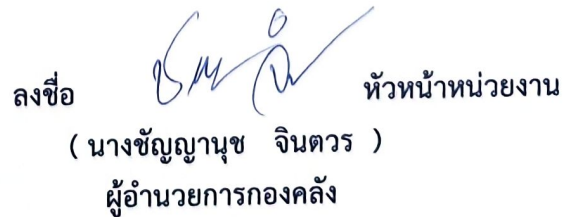 ลงชื่อ หัวหน้าหน่วยงาน
( นางชัญญานุช จินตวร )
ผู้อำนวยการกองคลัง